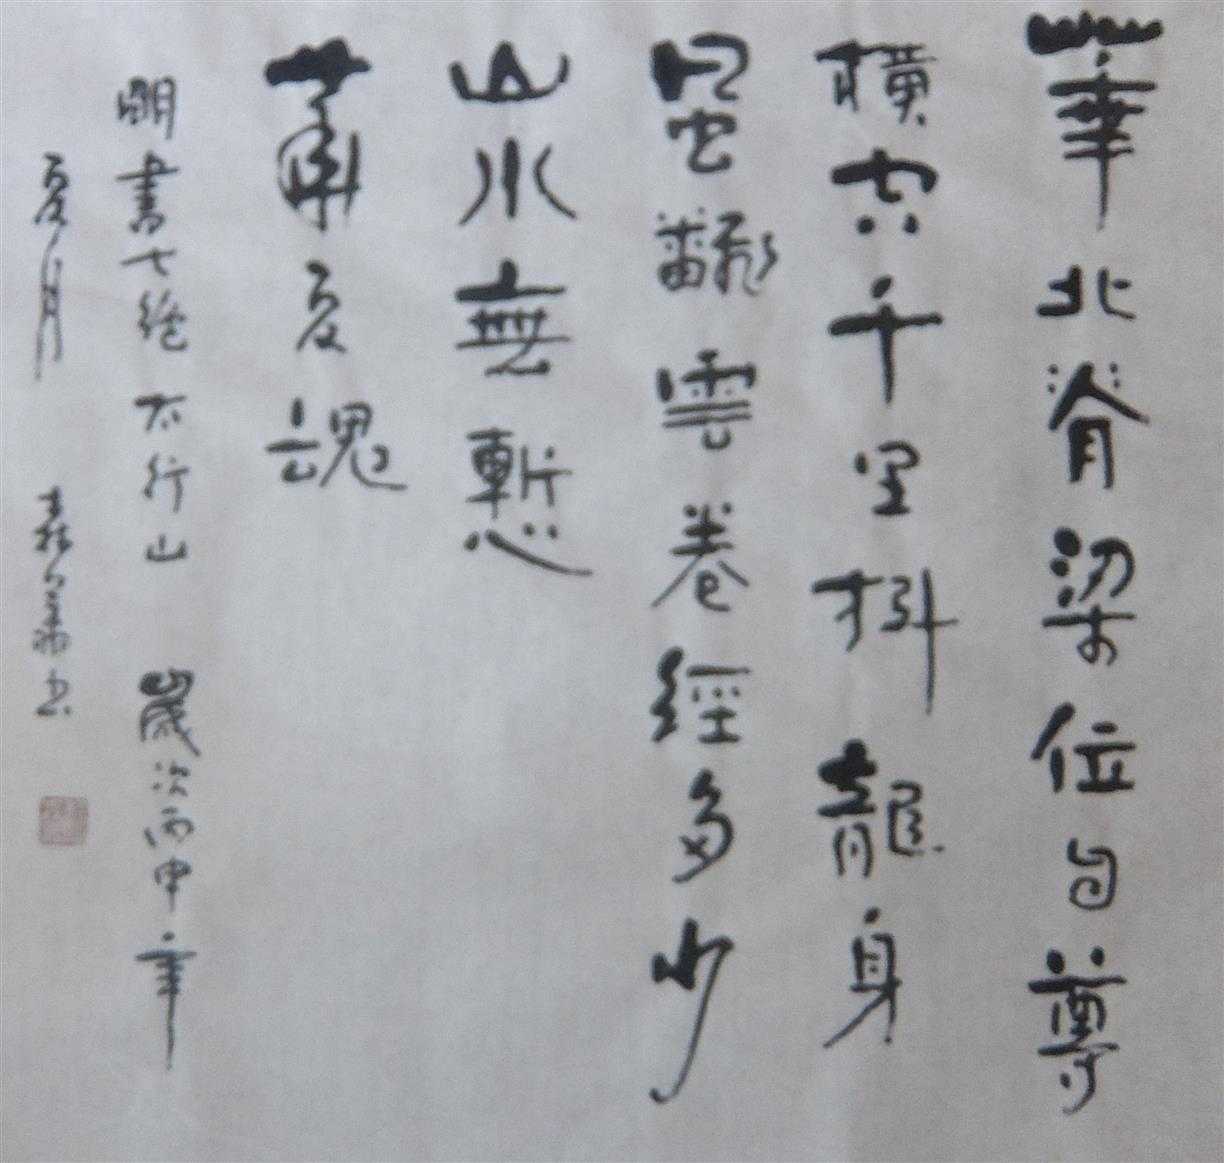 華北脊梁位自尊
橫千里抖龍身
風翻雲卷經多少
山水無慚
華夏魂
明書七絕太行山 歲次丙申年
夏月